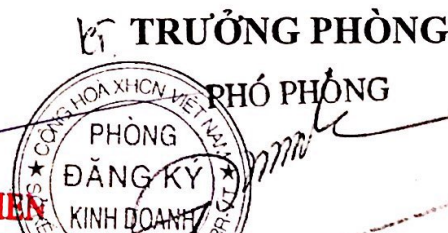 KT. TRƯỞNG PHÒNG
PHÓ PHÒNG
CỘNG HOÀ XHCN VIỆT NAM
PHÒNG
ĐĂNG KÝ
KINH DOANH